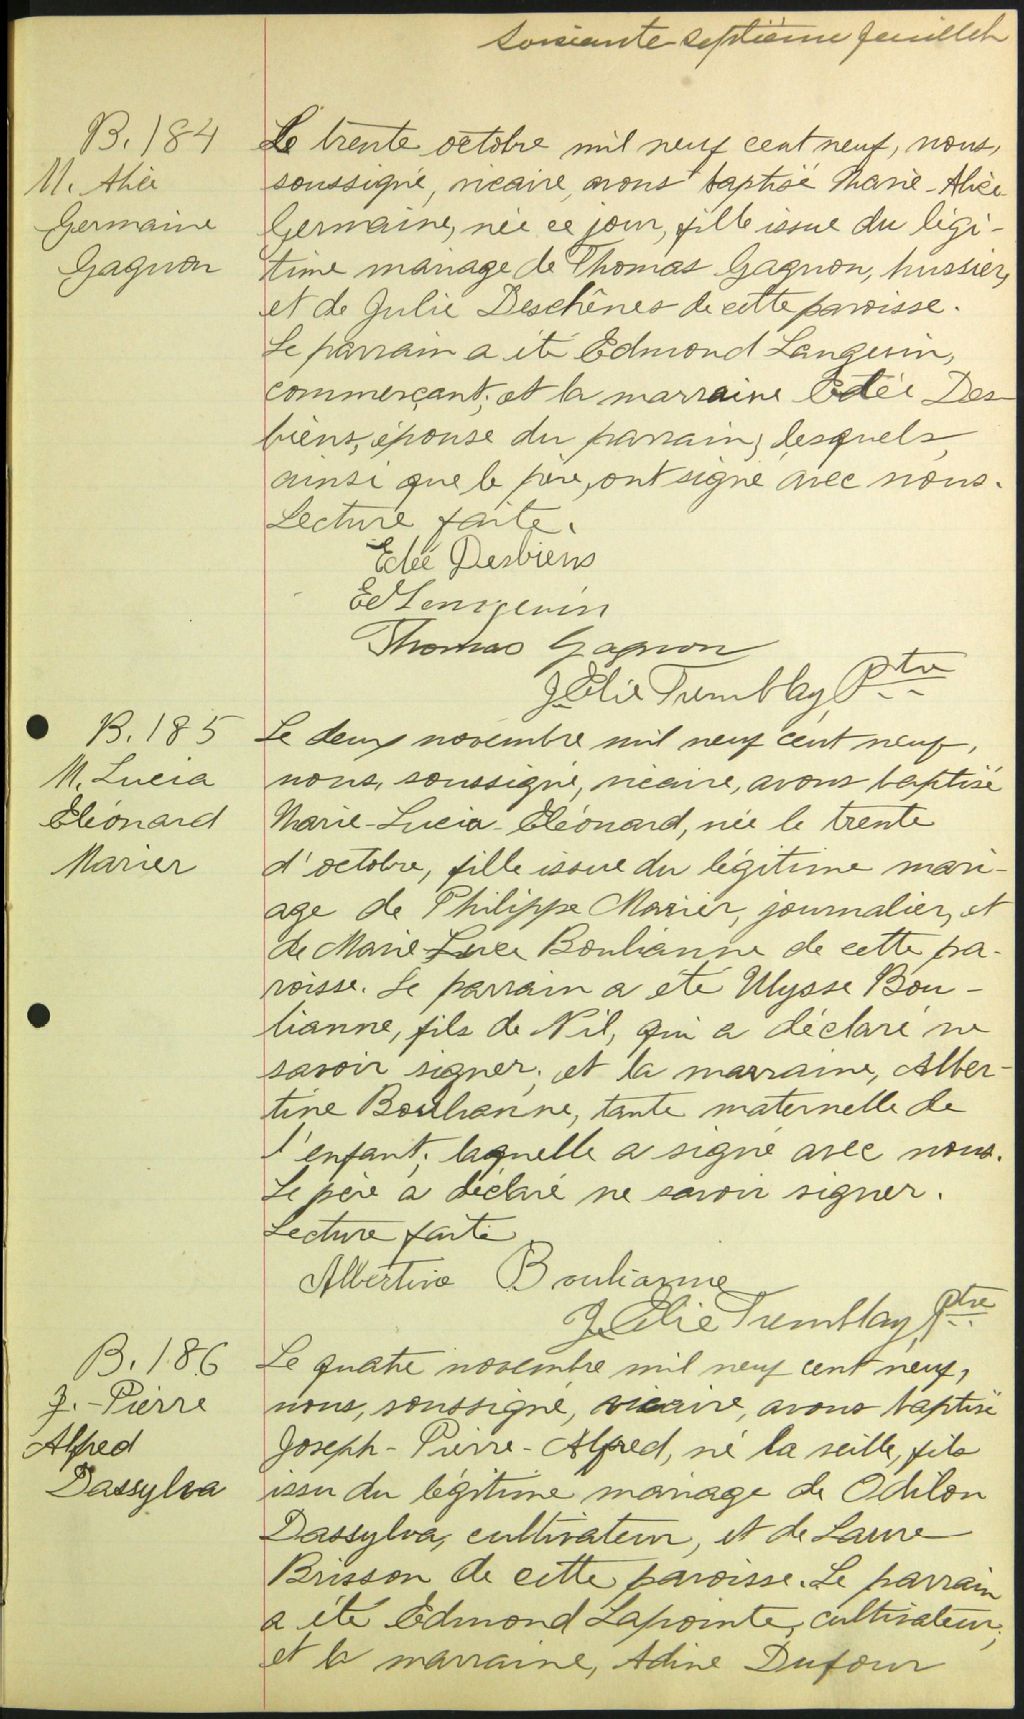 Soixante-septième feuillet
B. 184
M. Alice
Germaine
Gagnon
Le trente octobre mil neuf cent neuf, nous,
soussigné, vicaire, avons baptisé Marie-Alice
Germaine, née ce jour, fille issue du légi-
time mariage de Thomas Gagnon, huissier,
et de Julie Deschênes de cette paroisse.
Le parrain a été Edmond Langevin,
commerçant; et la marraine Edée Des-
biens, épouse du parrain; lesquels,
ainsi que le père, ont signé avec nous.
Lecture faite.
Edée Desbiens
Ed Langevin
Thomas Gagnon
J. Elie Tremblay, Ptre
B. 185
M. Lucia
Eléonard
Marier
Le deux novembre mil neuf cent neuf,
nous, soussigné, vicaire, avons baptisé
Marie-Lucia-Eléonard, née le trente
d'octobre, fille issue du légitime mari-
age de Philippe Marier, journalier, et
de Marie-Luce Boulianne de cette pa-
roisse. Le parrain a été Ulysse Bou-
lianne, fils de Nil, qui a déclaré ne
savoir signer; et la marraine, Alber-
tine Boulianne, tante maternelle de
l'enfant; laquelle a signé avec nous.
Le père a déclaré ne savoir signer.
Lecture faite
Albertine Boulianne
J. Elie Tremblay, Ptre
B. 186
J.-Pierre
Alfred
Dassylva
Le quatre novembre mil neuf cent neuf,
nous, soussigné, vicaire, avons baptisé
Joseph-Pierre-Alfred, né la veille, fils
issu du légitime mariage de Odilon
Dassylva, cultivateur, et de Laure
Brisson de cette paroisse. Le parrain
a été Edmond Lapointe, cultivateur;
et la marraine, Adine Dufour